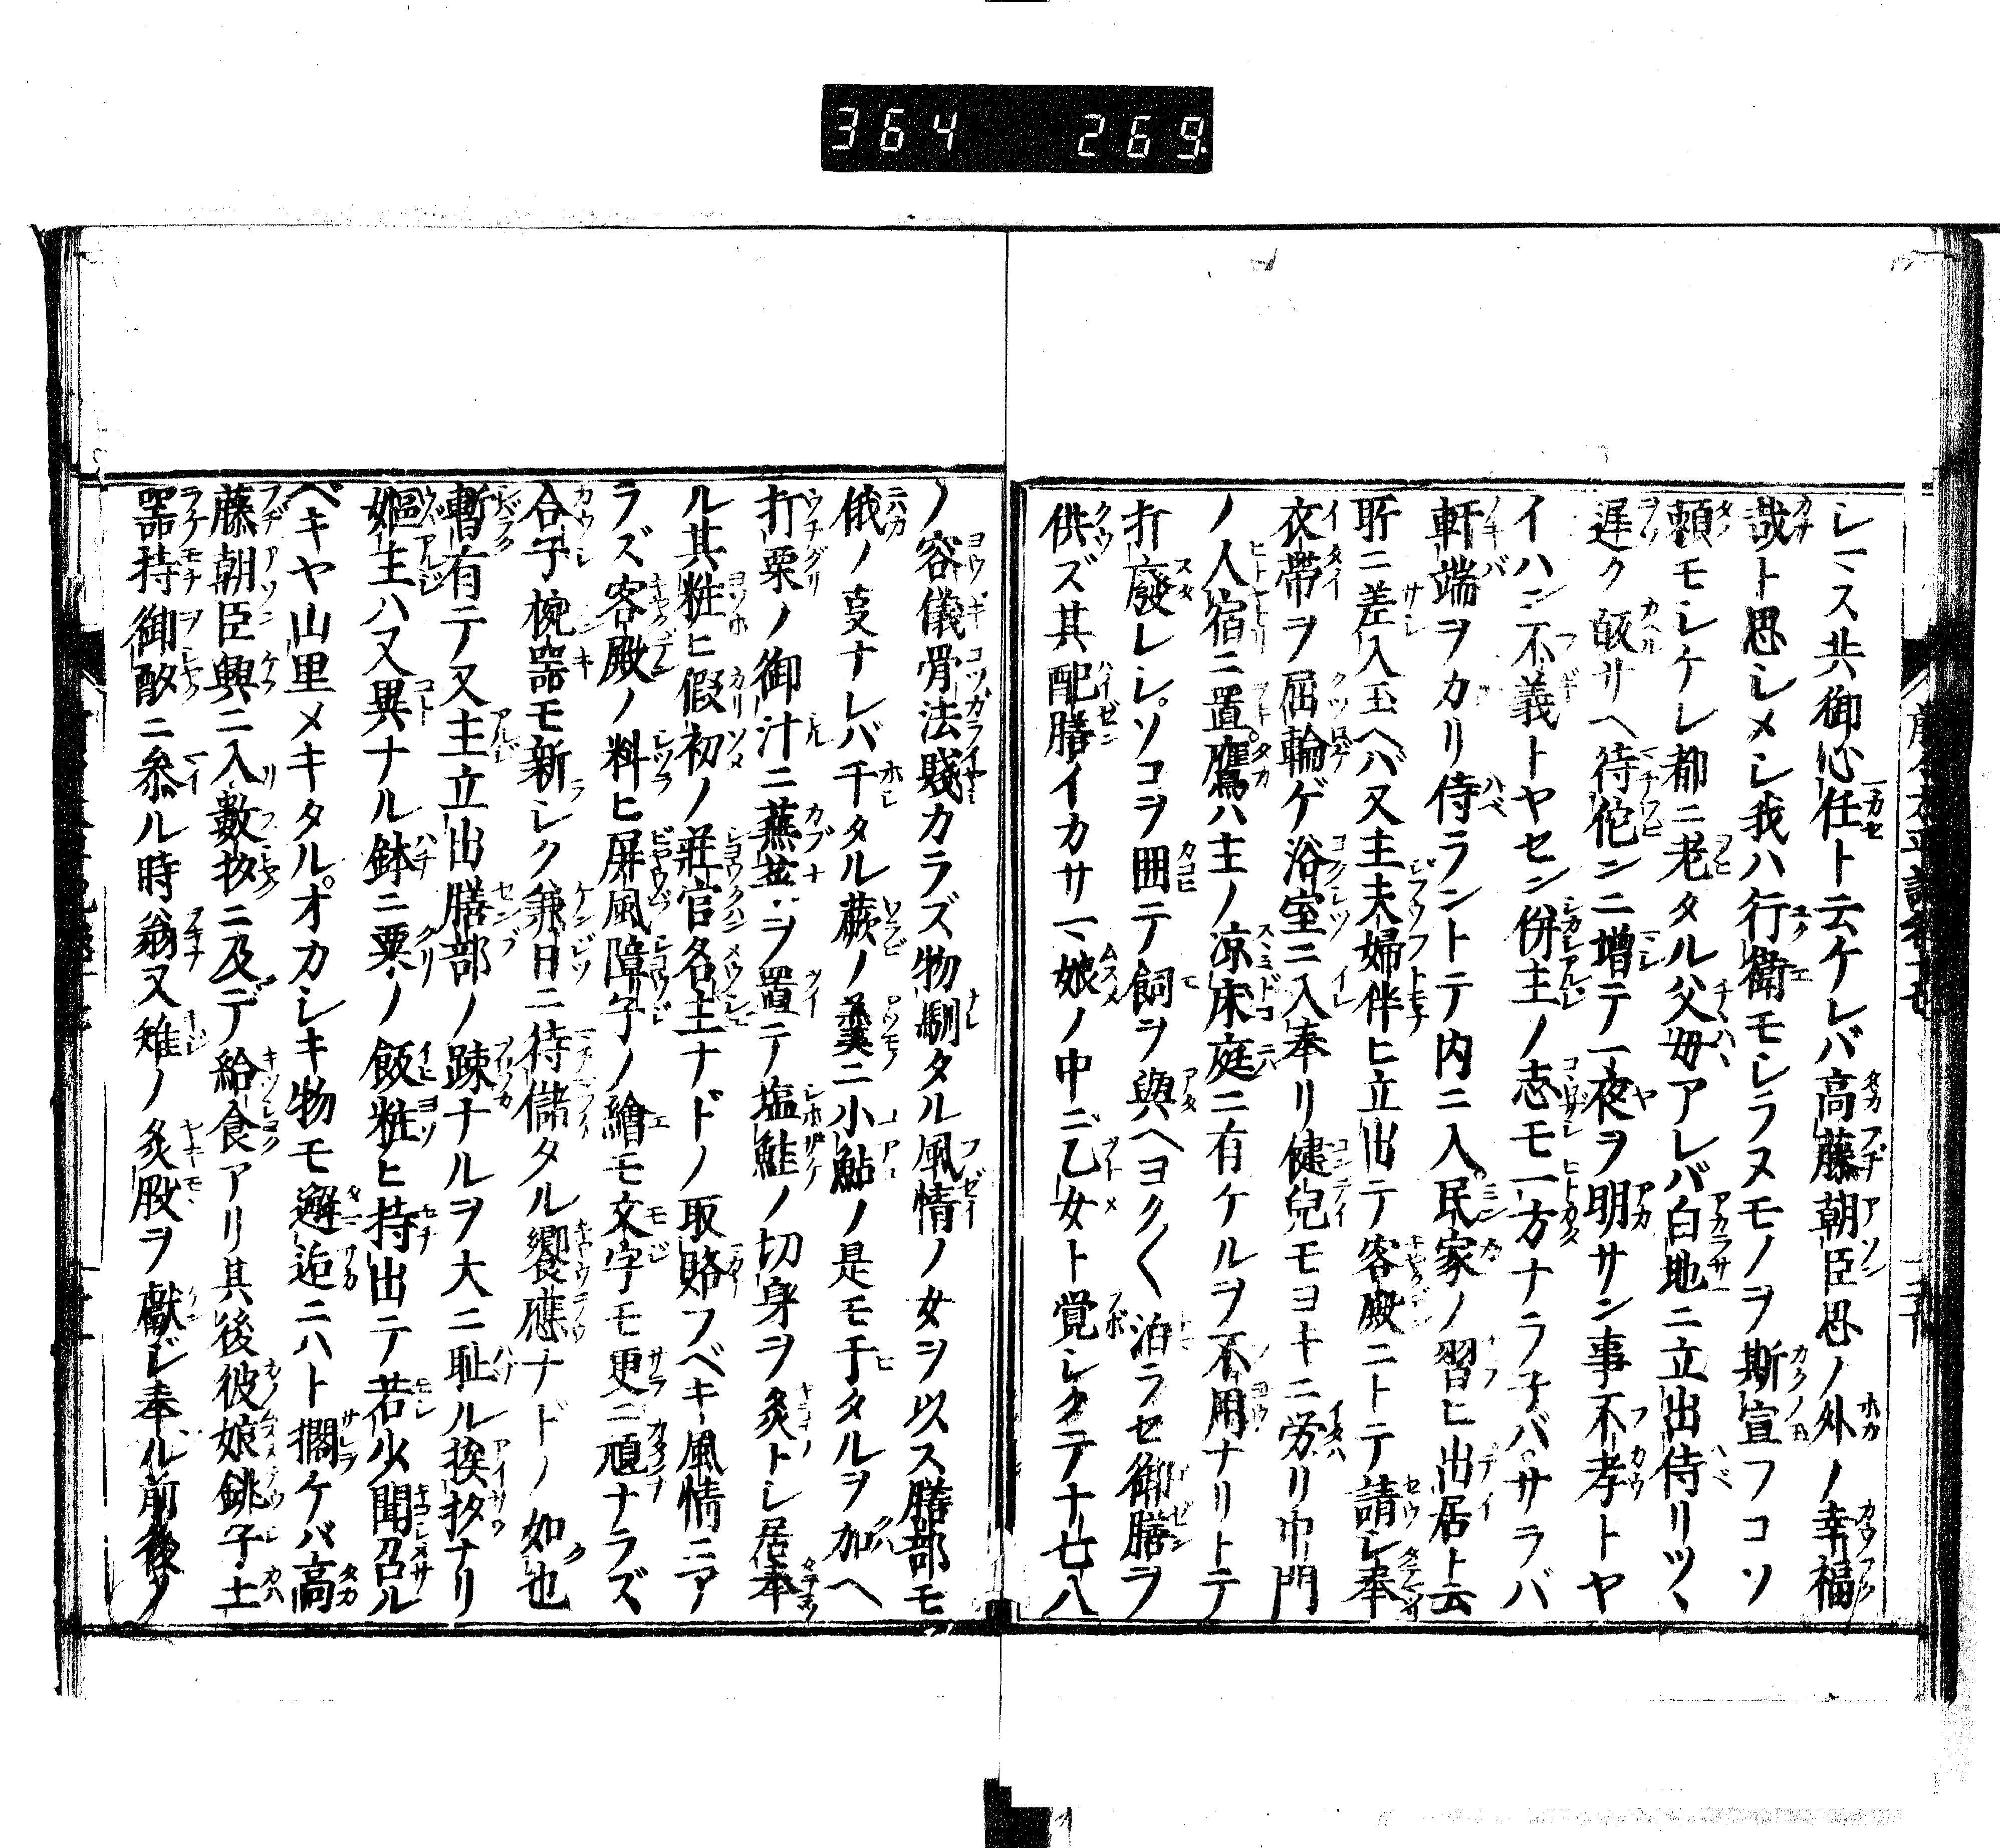 364 269
シマス共御心任ト云ケレバ高藤朝臣思ノ外ノ幸福
哉ト思シメシ我ハ行衛モシラヌモノヲ斯宣フコソ
頼モシケレ都ニ老タル父母アレバ白地ニ立出侍リツヽ
遅ク皈サヘ待佗ンニ増テ一夜ヲ明サン事不孝トヤ
イハン不義トヤセン併主ノ志モ一方ナラ子バサラバ
軒端ヲカリ侍ラントテ内ニ入民家ノ習ヒ出居ト云
所ニ差入玉ヘバ又主夫婦伴ヒ立出テ客殿ニトテ請シ奉
衣帯ヲ屈輪ゲ浴室ニ入奉リ健兒モヨキニ労リ中門
ノ人宿ニ置鷹ハ主ノ凉床庭ニ有ケルヲ不用ナリトテ
打廢レシソコヲ囲テ飼ヲ與ヘヨク〱泊ラセ御膳ヲ
供ズ其配膳イカサマ娘ノ中ニ乙女ト覚シクテ十七八
ノ容儀骨法賤カラズ物馴タル風情ノ女ヲ以ス膳部モ
俄ノ支ナレバ干タル蕨ノ羹ニ小鮎ノ是モ干タルヲ加ヘ
打栗ノ御汁ニ蕪ヲ置テ塩鮭ノ切身ヲ炙トシ居奉
ル其粧ヒ假初ノ莊官名主ナドノ取賂フベキ風情ニア
ラズ客殿ノ料ヒ屏風障子ノ繪モ文字モ更ニ頑ナラズ
合子椀器モ新シク兼日ニ待儲タル饗應ナドノ如也
暫有テ又主立出膳部ノ疎ナルヲ大ニ耻ル挨拶ナリ
嫗主ハ又異ナル鉢ニ粟ノ飯粧ヒ持出テ若少聞召ル
ベキヤ山里メキタルオカシキ物モ邂逅ニハト擱ケバ高
藤朝臣興ニ入數抜ニ及デ給食アリ其後彼娘銚子土
器持御酌ニ参ル時翁又雉ノ炙股ヲ獻ジ奉ル前後ノ